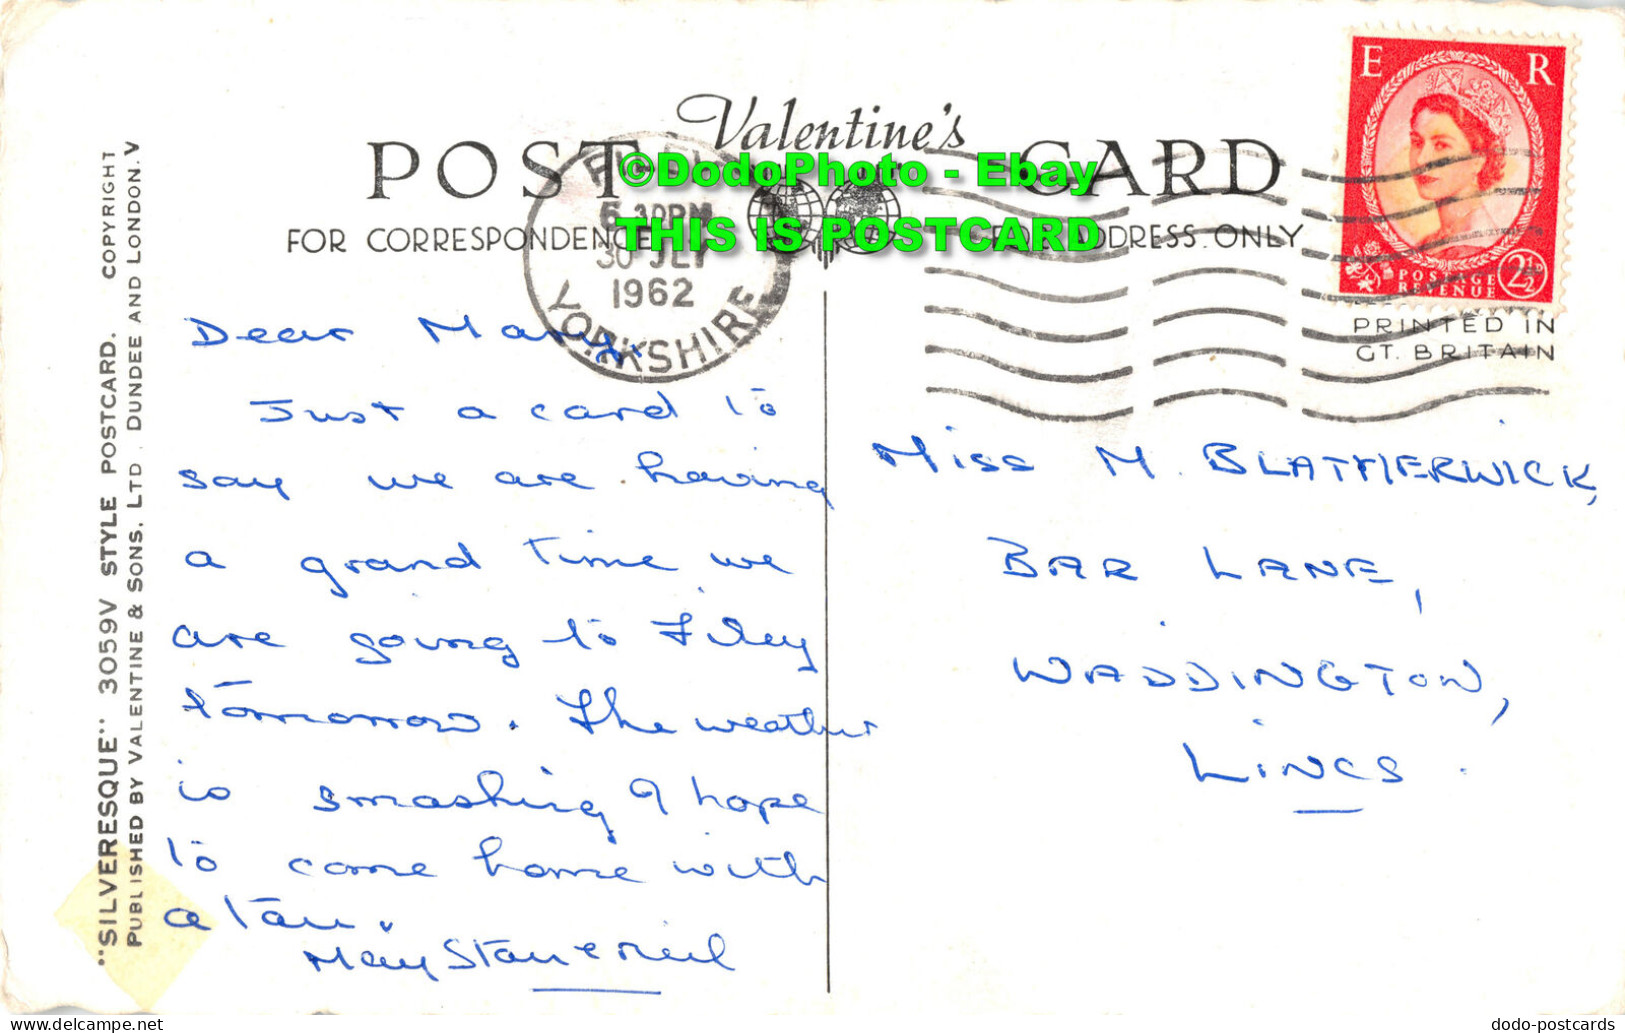 Valentine's
POST CARD
FOR CORRESPONDENCE ADDRESS ONLY
©DodoPhoto - Ebay
THIS IS POSTCARD
6 30PM
30 JLY
1962
YORKSHIRE
E R
POSTAGE
REVENUE
2½D
PRINTED IN
GT. BRITAIN
"SILVERESQUE" 3059V STYLE POSTCARD. COPYRIGHT
PUBLISHED BY VALENTINE & SONS. LTD. DUNDEE AND LONDON. V
Dear Mary
Just a card to
say we are having
a grand time we
are going to Filey
tomorrow. The weather
is smashing I hope
to come home with
a tan.
May Stan & Neil
Miss M. BLATHERWICK,
BAR LANE,
WADDINGTON,
LINCS.
dodo-postcards